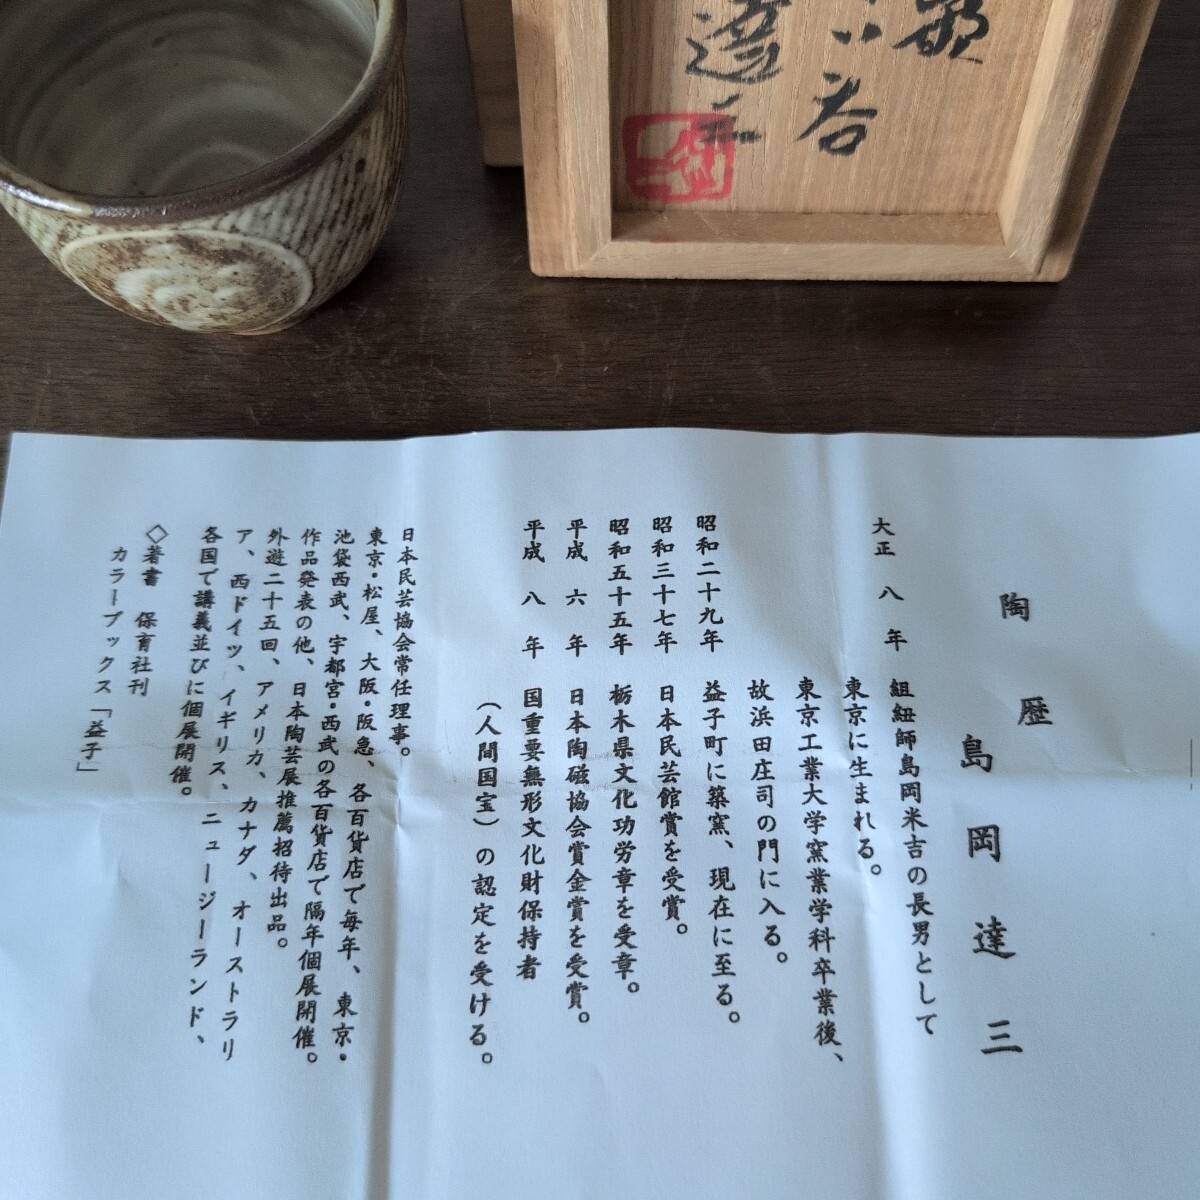 呑
達三
陶歴
島岡達三
大正八年 組紐師島岡米吉の長男として
東京に生まれる。
東京工業大学窯業学科卒業後、
故浜田庄司の門に入る。
昭和二十九年 益子町に築窯、現在に至る。
昭和三十七年 日本民芸館賞を受賞。
昭和五十五年 栃木県文化功労章を受章。
平成六年 日本陶磁協会賞金賞を受賞。
平成八年 国重要無形文化財保持者
(人間国宝)の認定を受ける。
日本民芸協会常任理事。
東京・松屋、大阪・阪急、各百貨店で毎年、東京・
池袋西武、宇都宮・西武の各百貨店で隔年個展開催。
作品発表の他、日本陶芸展推薦招待出品。
外遊二十五回、アメリカ、カナダ、オーストラリ
ア、西ドイツ、イギリス、ニュージーランド、
各国で講義並びに個展開催。
◇著書 保育社刊
カラーブックス「益子」